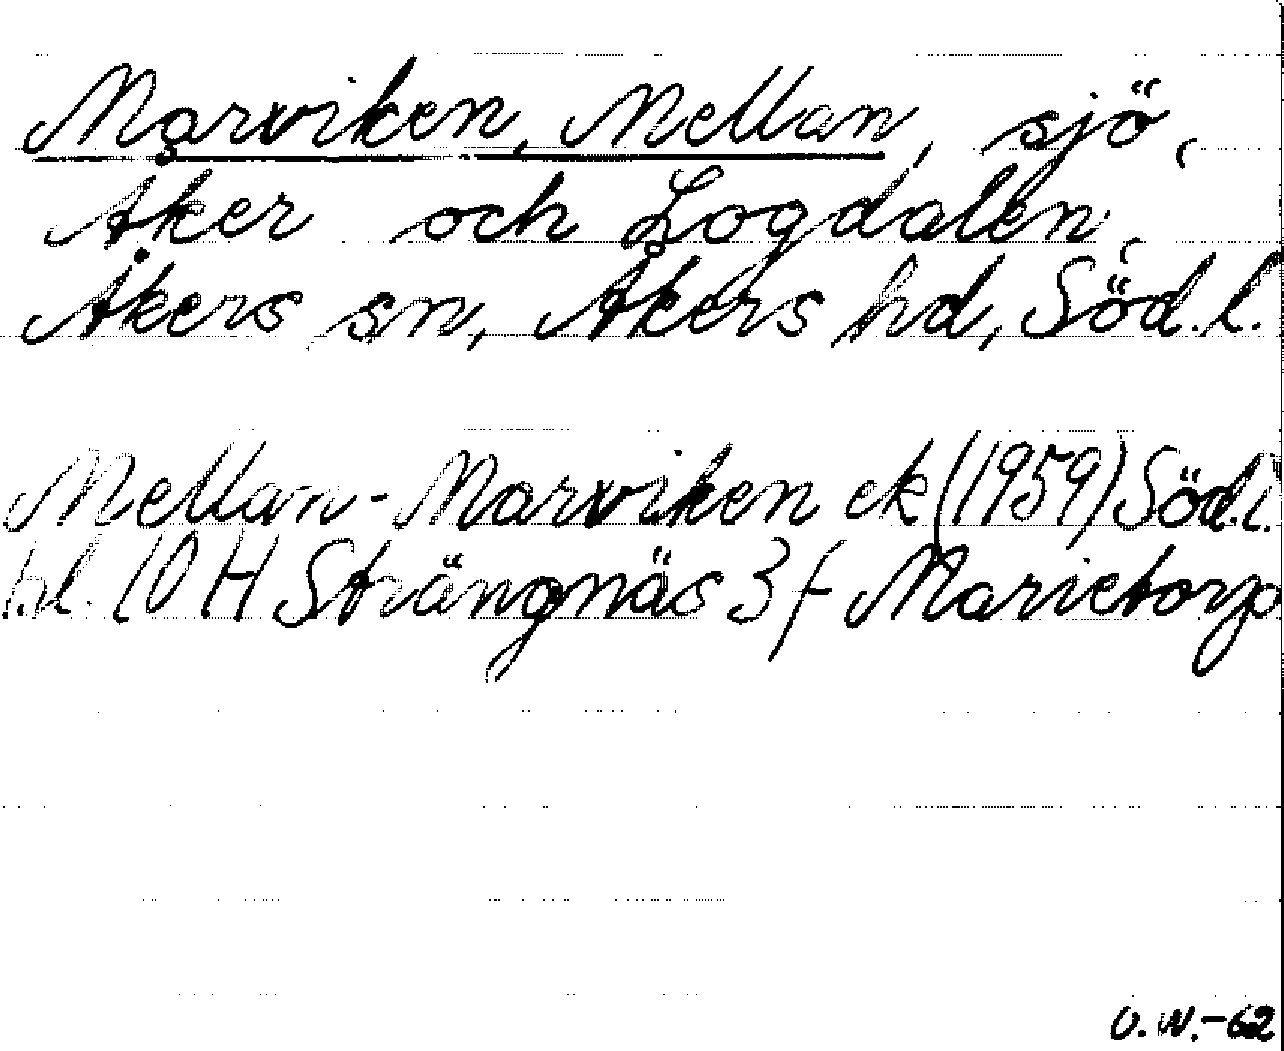 Marviken, Mellan, sjö,
Åker och Logdalen,
Åkers sn, Åkers hd, Söd. l.
Mellan-Marviken ek (1959) Söd. l.
bl. 10 H Strängnäs 3 f Marietorp
U.W.-62